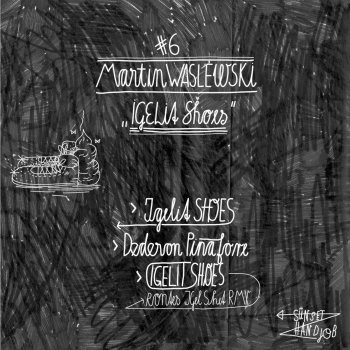 #6
Martin WASLEWSKI
„IGELIT Shoes"
> Igelit SHOES
> Dederon Pinafore
> IGELIT SHOES
RONtes Igel Shit RMX
SUNSET
HANDJOB